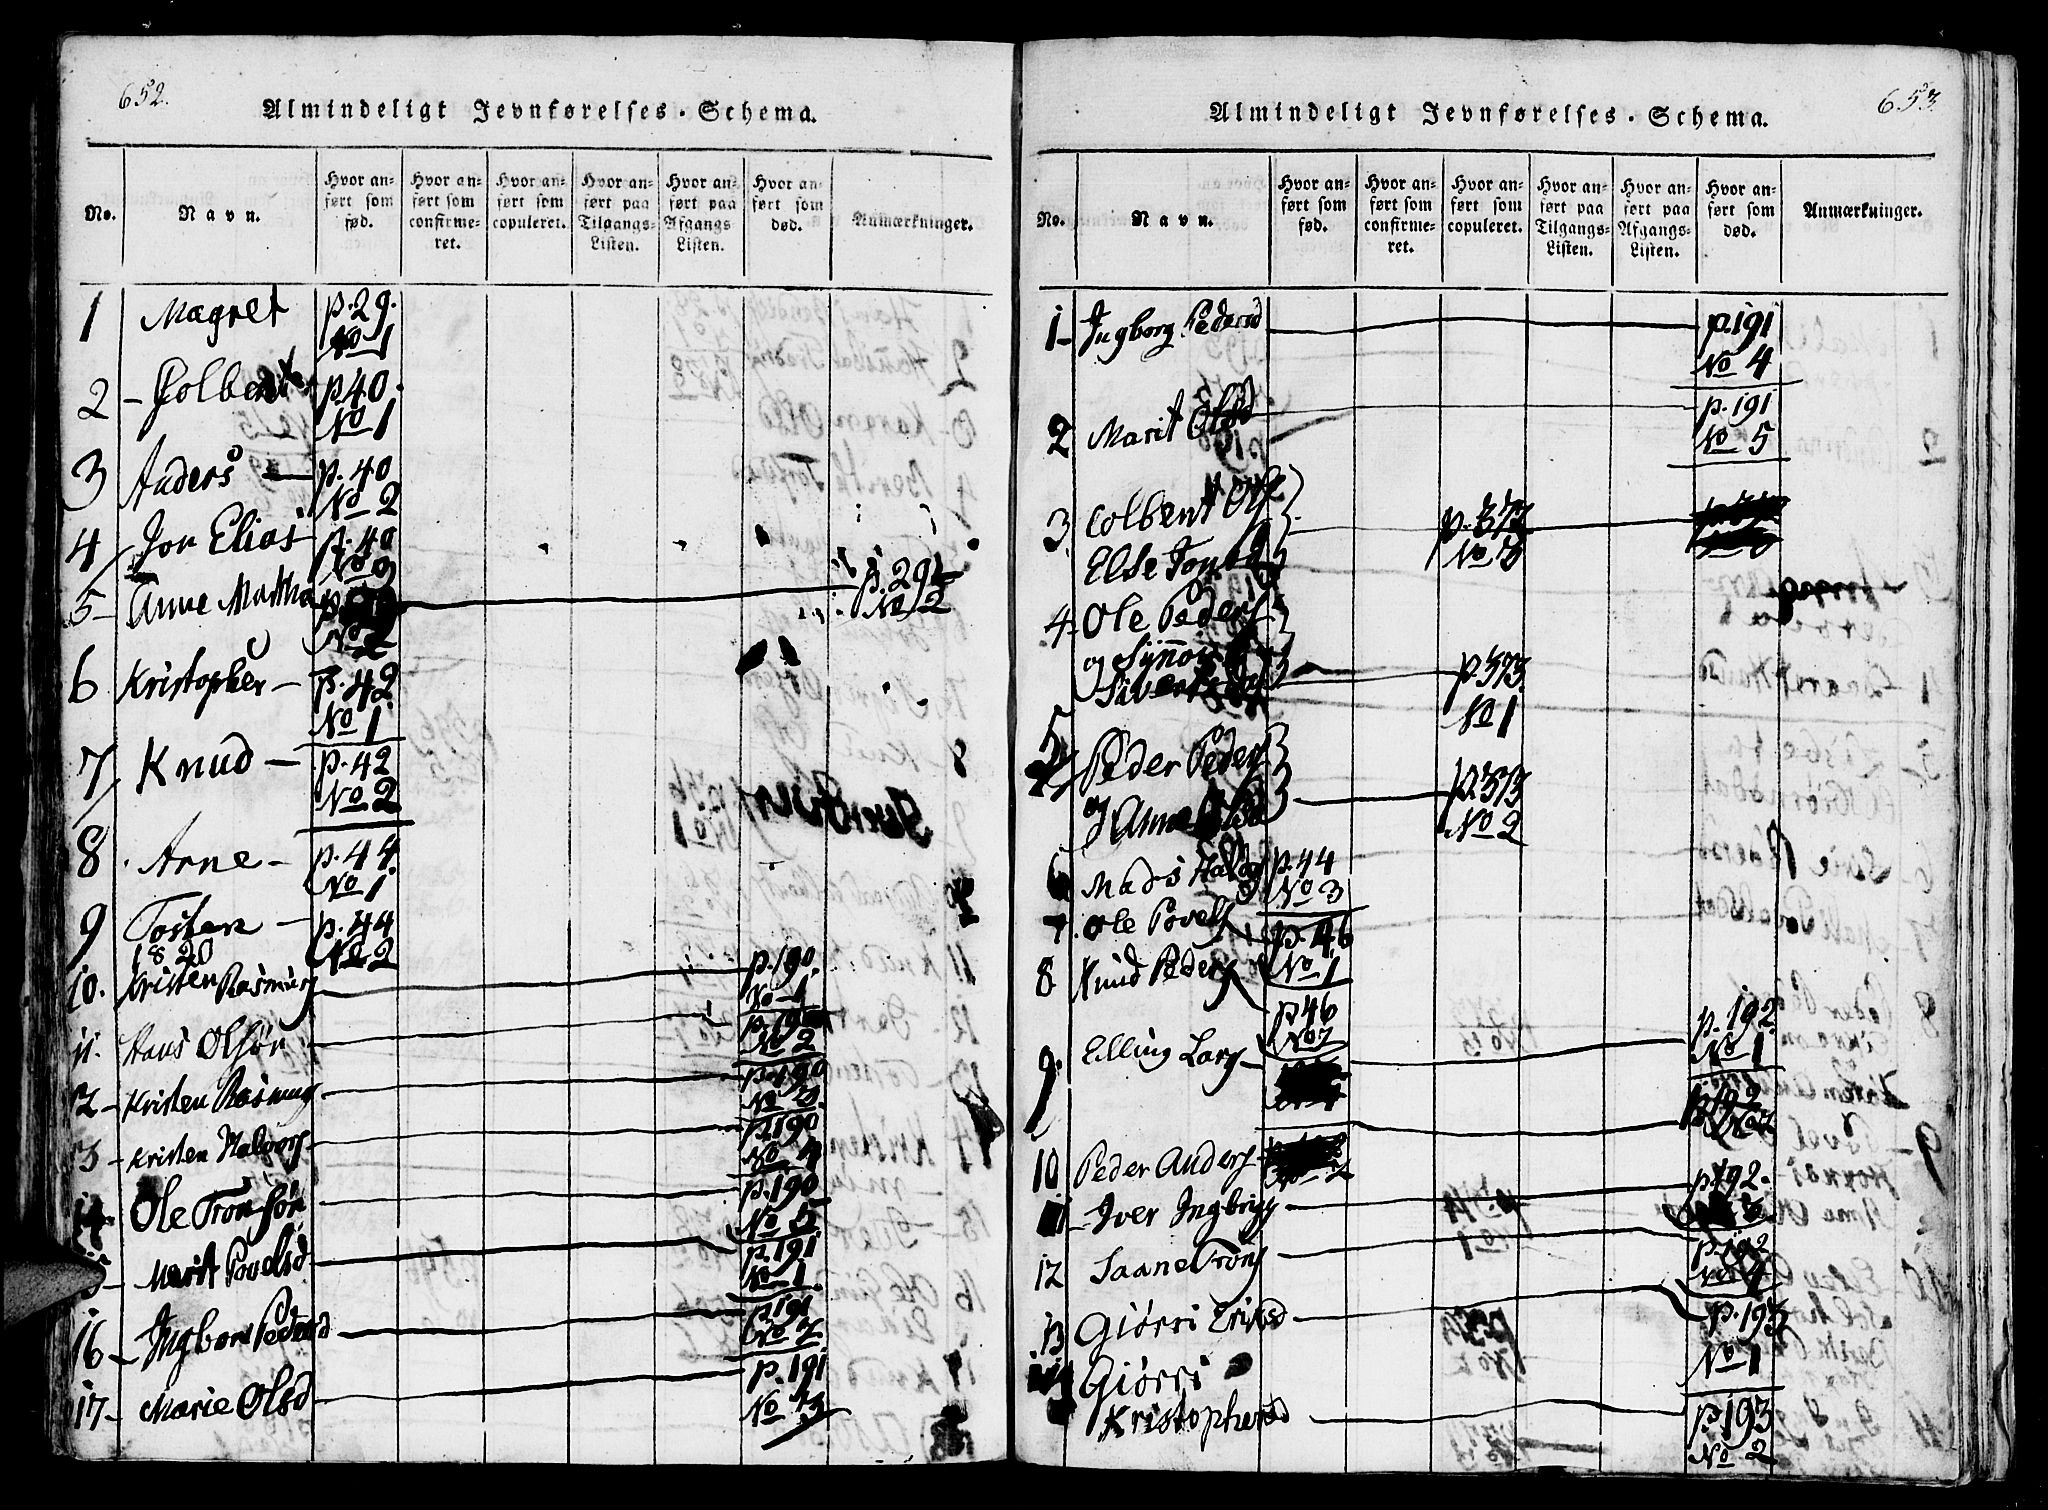 652.
Almindeligt Jevnførelses-Schema.
No.
Navn.
Hvor anført som fød.
Hvor anført som confirmeret.
Hvor anført som copuleret.
Hvor anført paa Tilgangs-Listen.
Hvor anført paa Afgangs Listen.
Hvor anført som død.
Anmærkninger.
1 Magret p. 29.
No 1
2 - Colbent p. 40.
No 1
3 Anders p. 40
No 2
4 Jon Elias p. 40
No 3
5 - Anne p. 294
No 2
6 Kristopher - p. 42
No 1
7 Knud - p. 42
No 2
8 Arne - p. 44
No 1
9 Tosten - p. 44
1820 No 2
10. Kristen Rasmus p. 190
No 1
11. Hans Olsøn p. 190
No 2
12 - Kristen Rasmus p. 190
No 3
13 - Kristen Halvors p. 190
No 4
14 - Ole Tronsøn p. 190
No 5
15 - Marit Povelsd p. 191
No 1
16 - Ingborg Pedersd p. 191
No 2
17 - Marie Olsd p. 191
No 3
653
Almindeligt Jevnførelses-Schema.
No.
Navn.
Hvor anført som fød.
Hvor anført som confirmeret.
Hvor anført som copuleret.
Hvor anført paa Tilgangs-Listen.
Hvor anført paa Afgangs-Listen.
Hvor anført som død.
Anmærkninger.
1 - Ingborg Pedersd p. 191
No 4
2 Marit Olsd p. 191
No 5
3. Colbent Ols p. 372
Else Jonsd No 3
4. Ole Peders
og Synove p. 373
Sivertsd No 1
5 Peder Peders
og Anne Olsd p. 373
No 2
6 Mads Halvors p. 44
No 3
7. Ole Povels p. 46
No 1
8 Knud Peders p. 46
No 2
9. Elling Lars p. 192
No 1
10 Peder Anders p. 192
No 2
11 - Iver Ingbrigs p. 192
No 3
12 Saane Trons p. 192
No 4
13 Giørri Eriksd p. 193
No 1
14 Giørri
Kristophersd p. 193
No 2